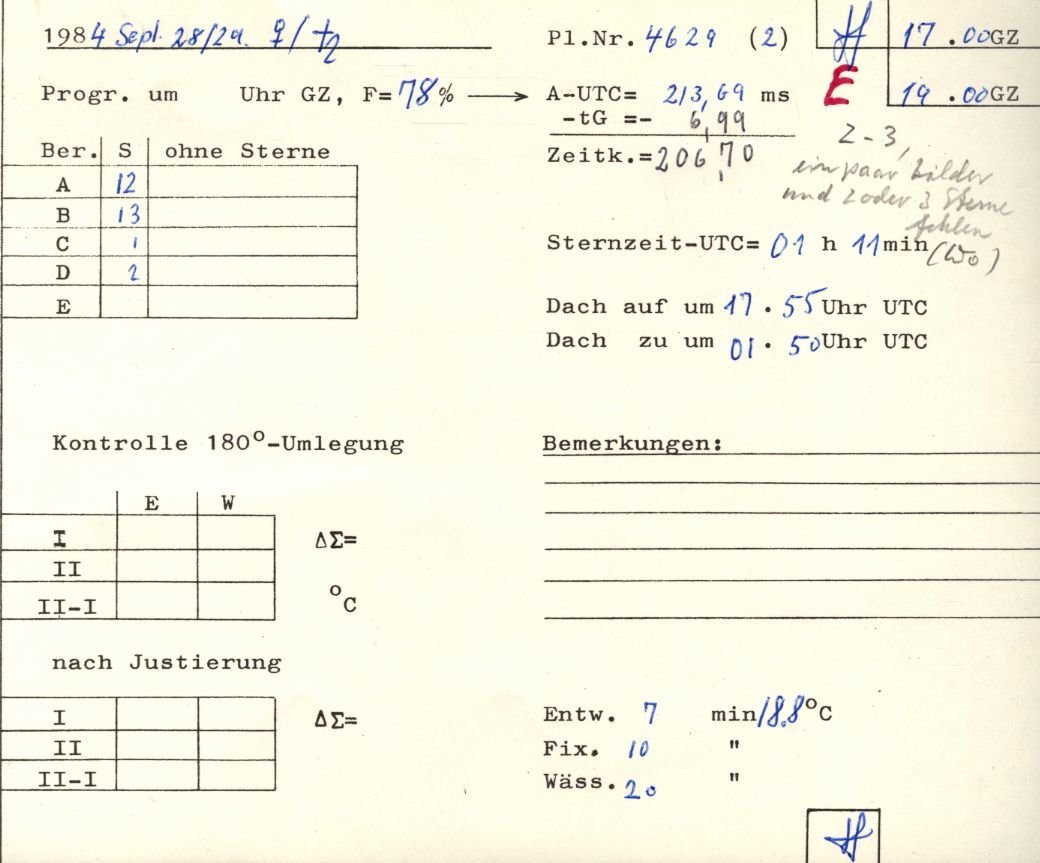 1984 Sept. 28/29. ♀/♄2
Pl.Nr. 4629 (2)
17.00GZ
Progr. um Uhr GZ, F=78% → A-UTC= 213,69 ms
E
19.00GZ
-tG =- 6,99
Zeitk.=206,70
2-3,
ein paar Bilder
und 2 oder 3 Sterne
fehlen
(Wo)
Ber. S ohne Sterne
A 12
B 13
C 1
D 2
E
Sternzeit-UTC= 01 h 11min
Dach auf um 17.55Uhr UTC
Dach zu um 01.50Uhr UTC
Kontrolle 180°-Umlegung
E W
I ΔΣ=
II
II-I °C
Bemerkungen:
nach Justierung
I ΔΣ=
II
II-I
Entw. 7 min/18.8°C
Fix. 10 "
Wäss. 20 "